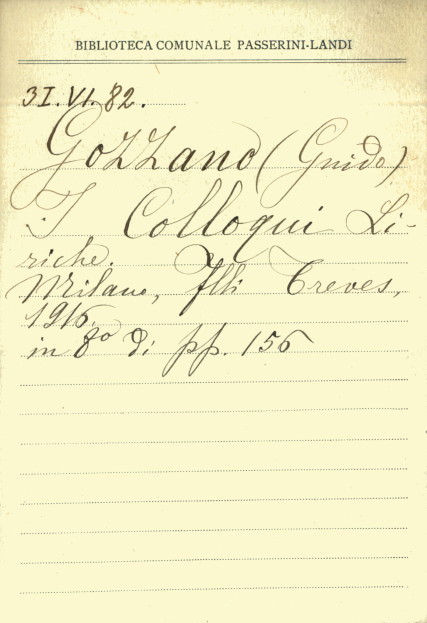 BIBLIOTECA COMUNALE PASSERINI-LANDI
3I.VI.82.
Gozzano (Guido)
I Colloqui Li-
riche.
Milano, Flli Treves,
1916.
in 8º di pp. 156